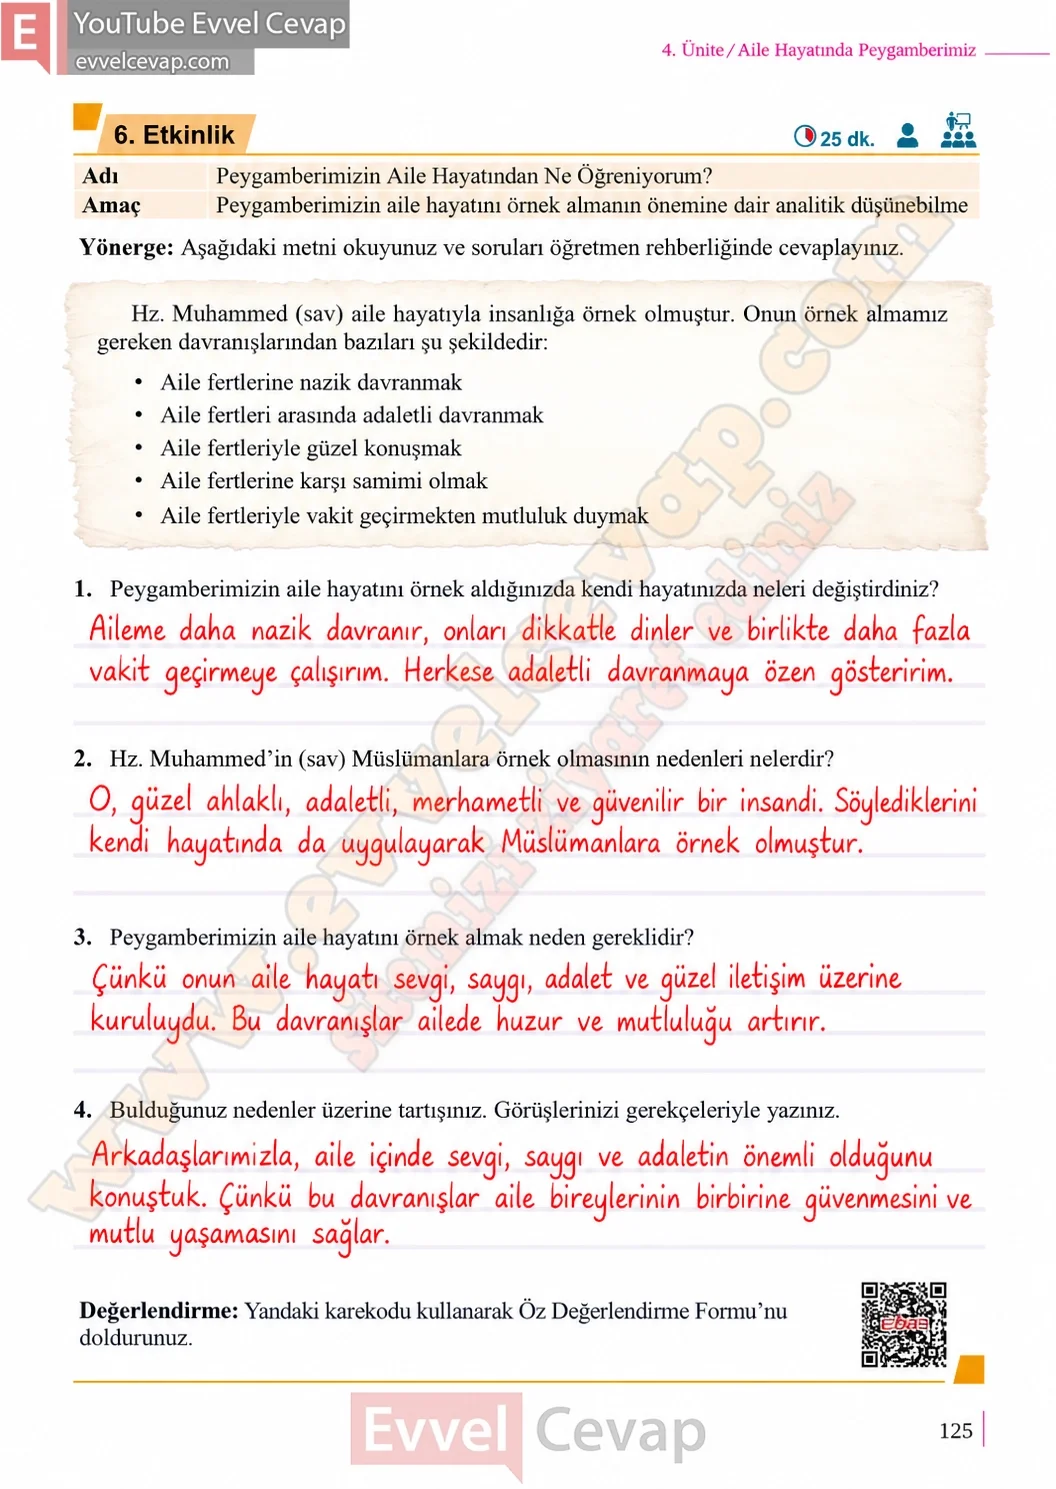 E YouTube Evvel Cevap
evvelcevap.com
4. Ünite / Aile Hayatında Peygamberimiz
6. Etkinlik
25 dk.
Adı Peygamberimizin Aile Hayatından Ne Öğreniyorum?
Amaç Peygamberimizin aile hayatını örnek almanın önemine dair analitik düşünebilme
Yönerge: Aşağıdaki metni okuyunuz ve soruları öğretmen rehberliğinde cevaplayınız.
Hz. Muhammed (sav) aile hayatıyla insanlığa örnek olmuştur. Onun örnek almamız
gereken davranışlarından bazıları şu şekildedir:
• Aile fertlerine nazik davranmak
• Aile fertleri arasında adaletli davranmak
• Aile fertleriyle güzel konuşmak
• Aile fertlerine karşı samimi olmak
• Aile fertleriyle vakit geçirmekten mutluluk duymak
1. Peygamberimizin aile hayatını örnek aldığınızda kendi hayatınızda neleri değiştirdiniz?
Aileme daha nazik davranır, onları dikkatle dinler ve birlikte daha fazla
vakit geçirmeye çalışırım. Herkese adaletli davranmaya özen gösteririm.
2. Hz. Muhammed'in (sav) Müslümanlara örnek olmasının nedenleri nelerdir?
O, güzel ahlaklı, adaletli, merhametli ve güvenilir bir insandi. Söylediklerini
kendi hayatında da uygulayarak Müslümanlara örnek olmuştur.
3. Peygamberimizin aile hayatını örnek almak neden gereklidir?
Çünkü onun aile hayatı sevgi, saygı, adalet ve güzel iletişim üzerine
kuruluydu. Bu davranışlar ailede huzur ve mutluluğu artırır.
4. Bulduğunuz nedenler üzerine tartışınız. Görüşlerinizi gerekçeleriyle yazınız.
Arkadaşlarımızla, aile içinde sevgi, saygı ve adaletin önemli olduğunu
konuştuk. Çünkü bu davranışlar aile bireylerinin birbirine güvenmesini ve
mutlu yaşamasını sağlar.
Değerlendirme: Yandaki karekodu kullanarak Öz Değerlendirme Formu'nu
doldurunuz.
eba
Evvel Cevap
125
www.evvelcevap.com
sitemizi ziyaret ediniz